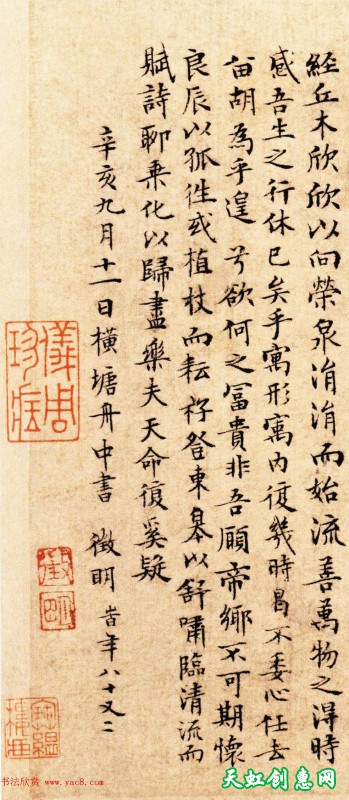 經丘木欣欣以向榮泉涓涓而始流善萬物之得時
感吾生之行休已矣乎寓形寓內復幾時曷不委心任去
畱胡為乎遑兮欲何之冨貴非吾願帝鄉不可期懷
良辰以孤徃或植杖而耘耔登東皋以舒嘯臨清流而
賦詩聊乗化以歸盡樂夫天命復奚疑
辛亥九月十一日橫塘舟中書 徵明 旹年八十又二
儀周珍藏
徵明
书法欣赏 www.yac8.com
天虹创惠网